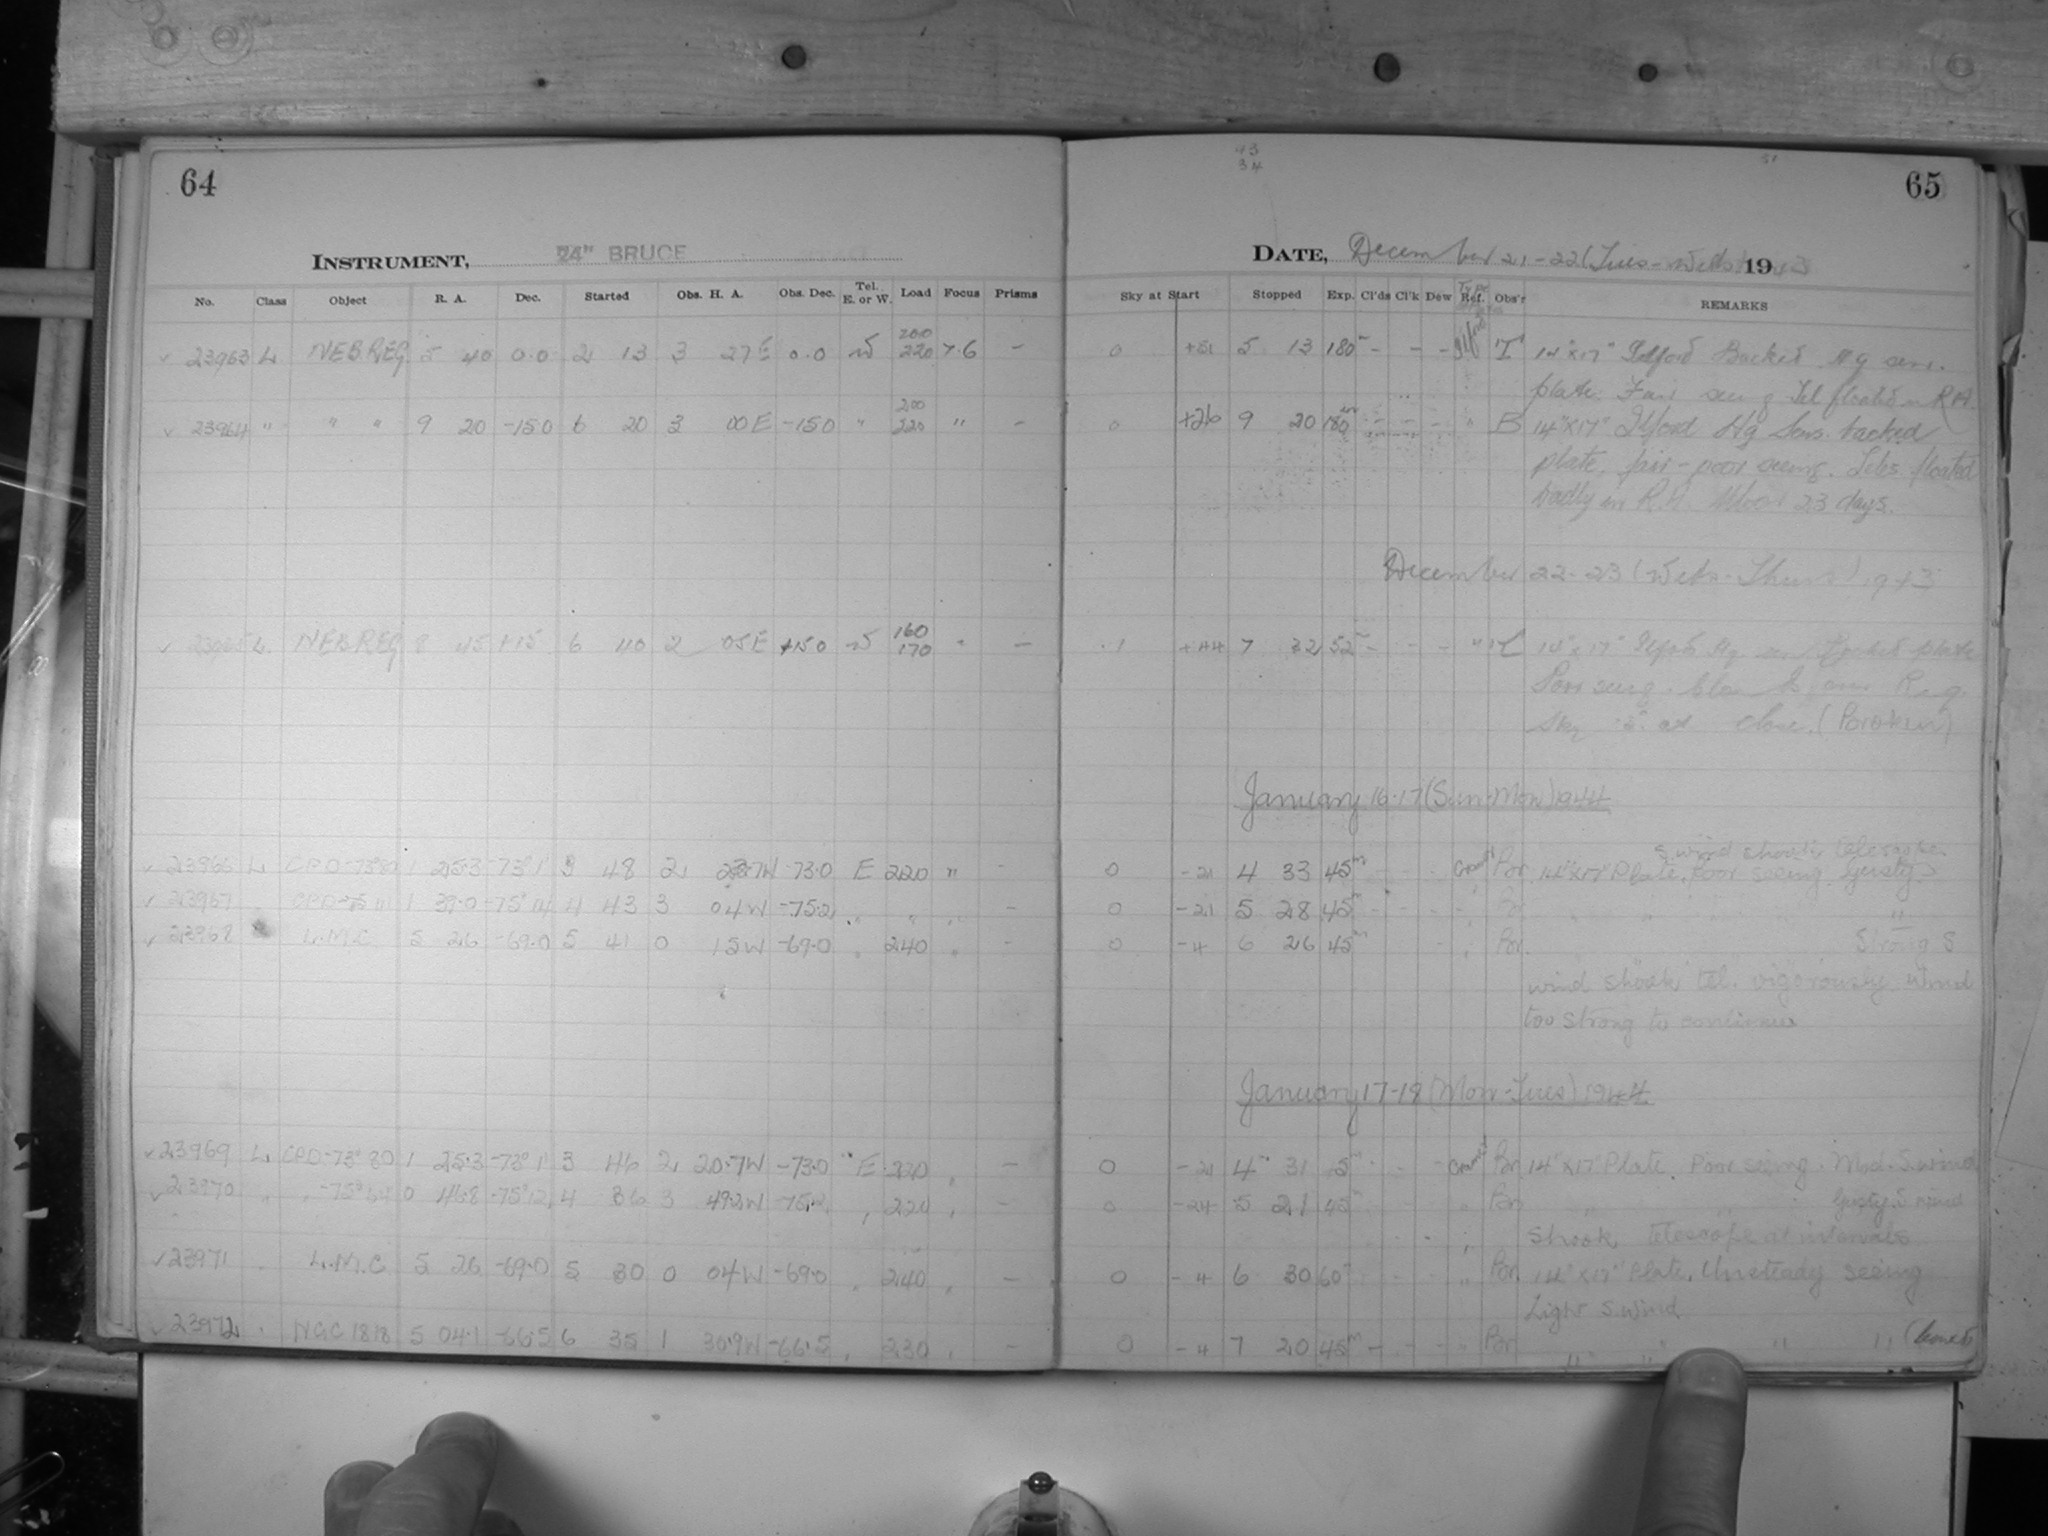 64
INSTRUMENT, 24" BRUCE
No. Class Object R. A. Dec. Started Obs. H. A. Obs. Dec. Tel. E. or W. Load Focus Prisms
23963 L NEB REG 5 40 0.0 2 13 3 27 E 0.0 W 200 220 7.6 -
23964 " " " 9 20 -15.0 6 20 3 00 E -15.0 " 200 220 " -
L. NEB REG 8 45 +15 6 40 2 05 E +15.0 W 160 170 " -
23966 L CPD -73°80 1 25.3 -73°1' 3 48 2 -73.0 E 220 " -
23967 1 39.0 -75°14 4 43 3 04 W -75.2 " " " -
23968 L.M.C 5 26 -69.0 5 41 0 15 W -69.0 " 240 " -
23969 L CPD -73°80 1 25.3 -73°1' 3 46 2 20.7 W -73.0 E 220 " -
23970 " " -75°64 0 46.8 -75°12 4 36 3 49.2 W -75.2 " 220 " -
23971 " L.M.C 5 26 -69.0 5 30 0 04 W -69.0 " 240 " -
23972 " NGC 1818 5 04.1 -66.5 6 35 1 30.9 W -66.5 " 230 " -
43
34
51
65
DATE, December 21-22 (Tues-Weds) 1943
Sky at Start Stopped Exp. Cl'ds Cl'k Dew Type Ref. Obs'r REMARKS
0 +51 5 13 180m - - - Ilford "T" 14"x17" Ilford Backed Hg sen.
plate. Fair seeing Tel floated in RA
0 +26 9 20 180m - - - " B 14"x17" Ilford Hg Sens. backed
plate, fair-poor seeing. Teles. floated
badly in R.A. Moon 23 days.
December 22-23 (Weds-Thurs) 1943
1 +44 7 32 52m - - - " 14"x17" Ilford Hg sen Backed plate
Poor seeing.
Sky at close. (Broken)
January 16-17 (Sun-Mon) 1944
S. wind shook telescope.
0 -21 4 33 45m Cramer Por. 14"x17" Plate. Poor seeing. Gusty
0 -21 5 28 45m - - " Por. " " " "
0 -4 6 26 45m - " Por. Strong S
wind shook tel. vigorously. Wind
too strong to continue
January 17-18 (Mon-Tues) 1944
0 -21 4 31 45m - - Cramer Por. 14"x17" Plate. Poor seeing. Mod. S. wind
0 -24 5 21 45m " Por. " " Gusty. S wind
shook telescope at intervals
0 -4 6 30 60m " Por. 14"x17" Plate. Unsteady seeing
Light S. wind
0 -4 7 20 45m - - - " Por. " " " "